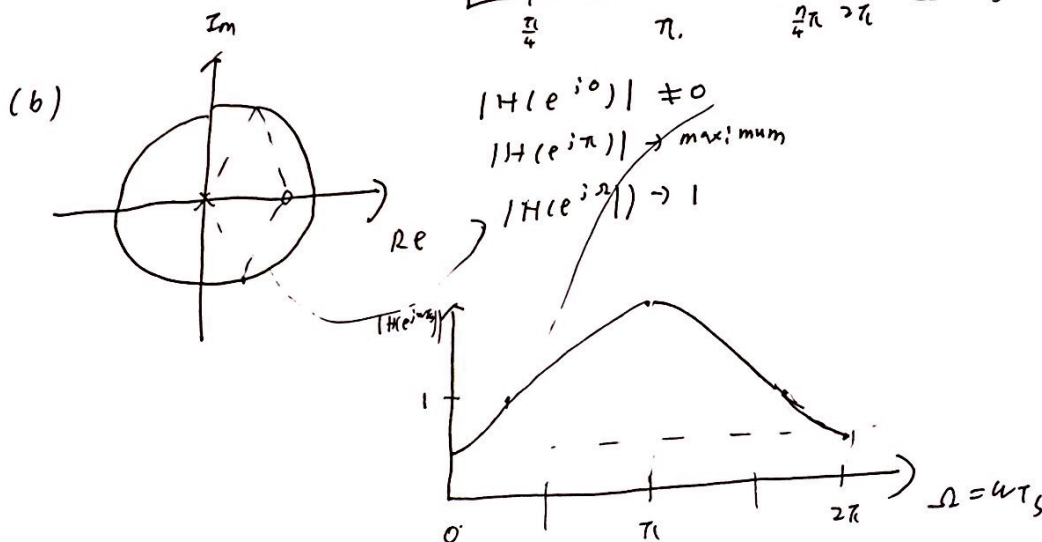 π/4 π. 7/4π 2π
Im
(b)
|H(e^{j0})| ≠ 0
|H(e^{jπ})| → maximum
|H(e^{jΩ})| → 1
Re
|H(e^{jωTs})|
1
0 π 2π
Ω = ωTs